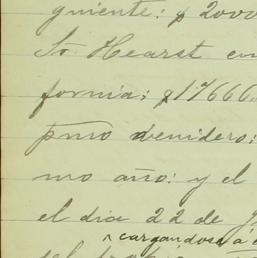 guiente: $2000
Sr. Hearst en
fornia; $17666
pmo venidero;
mo año: y el
el dia 22 de
cargandose á